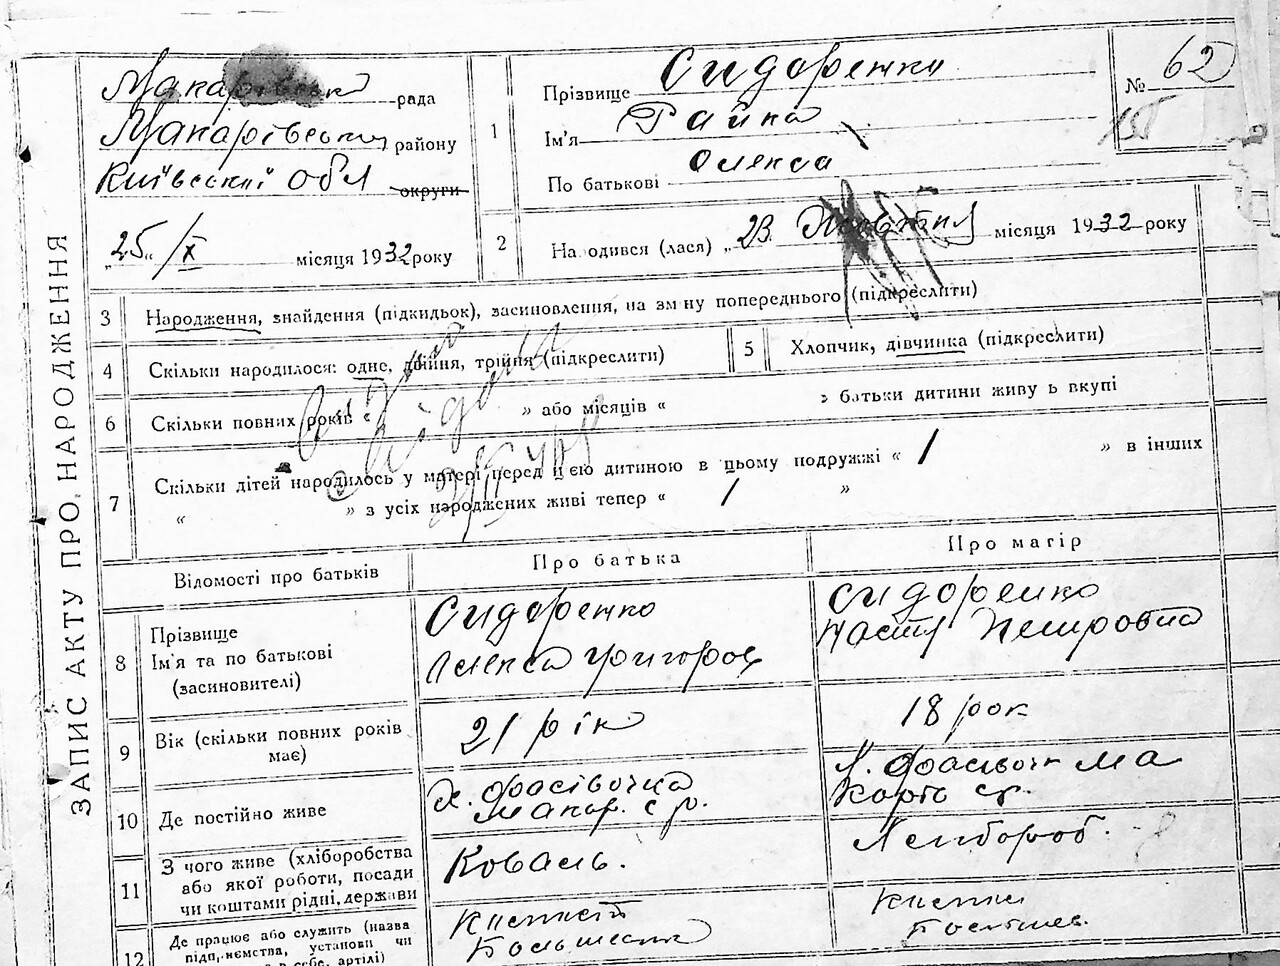 ЗАПИС АКТУ ПРО НАРОДЖЕННЯ
Макарівськ рада
Макарівськ району
Київської обл округи
„25“ /X місяця 1932 року
1 Прізвище Сидоренко
Ім'я Раїна
По батькові Олекса
№ 62
2 Народився (лася) „23 Жовтня місяця 1932 року
3 Народження, знайдення (підкидьок), засиновлення, на зміну попереднього (підкреслити)
4 Скільки народилося: одне, двійня, трійня (підкреслити)
5 Хлопчик, дівчинка (підкреслити)
6 Скільки повних років „ » або місяців “ » батьки дитини живуть вкупі
7 Скільки дітей народилось у матері перед цією дитиною в цьому подружжі “ 1 » в інших
“ » з усіх народжених живі тепер “ 1 »
Відомості про батьків
Про батька
Про матір
8 Прізвище
Ім'я та по батькові
(засиновителі)
Сидоренко
Олекса Григоров
Сидоренко
Петровна
9 Вік (скільки повних років
має)
21 рік
18 рок
10 Де постійно живе
х. Фасівочка
Макар. с р.
х. Фасівочк Ма
11 З чого живе (хліборобства
або якої роботи, посади
чи коштами рідні, держави
Коваль.
Хлібороб.
12 Де працює або служить (назва
підприємства, установи чи
в себе, артілі)